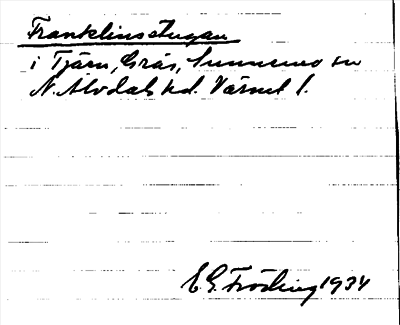 Franklinsstugan
i Tjärn, Gräs, Sunnemo sn
N. Älvdals hd. Värml l.
E. G. Fröding 1934